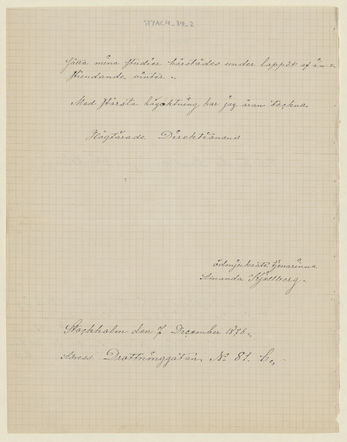 mina studier härstädes under loppet af än
stundande vinter.
Med största högaktning har jag äran teckna
Högtärade Direktionens
ödmjukaste tjenarinna
Amanda Kjellberg.
Stockholm den 7 December 18
Adress Drottninggatan No 81.